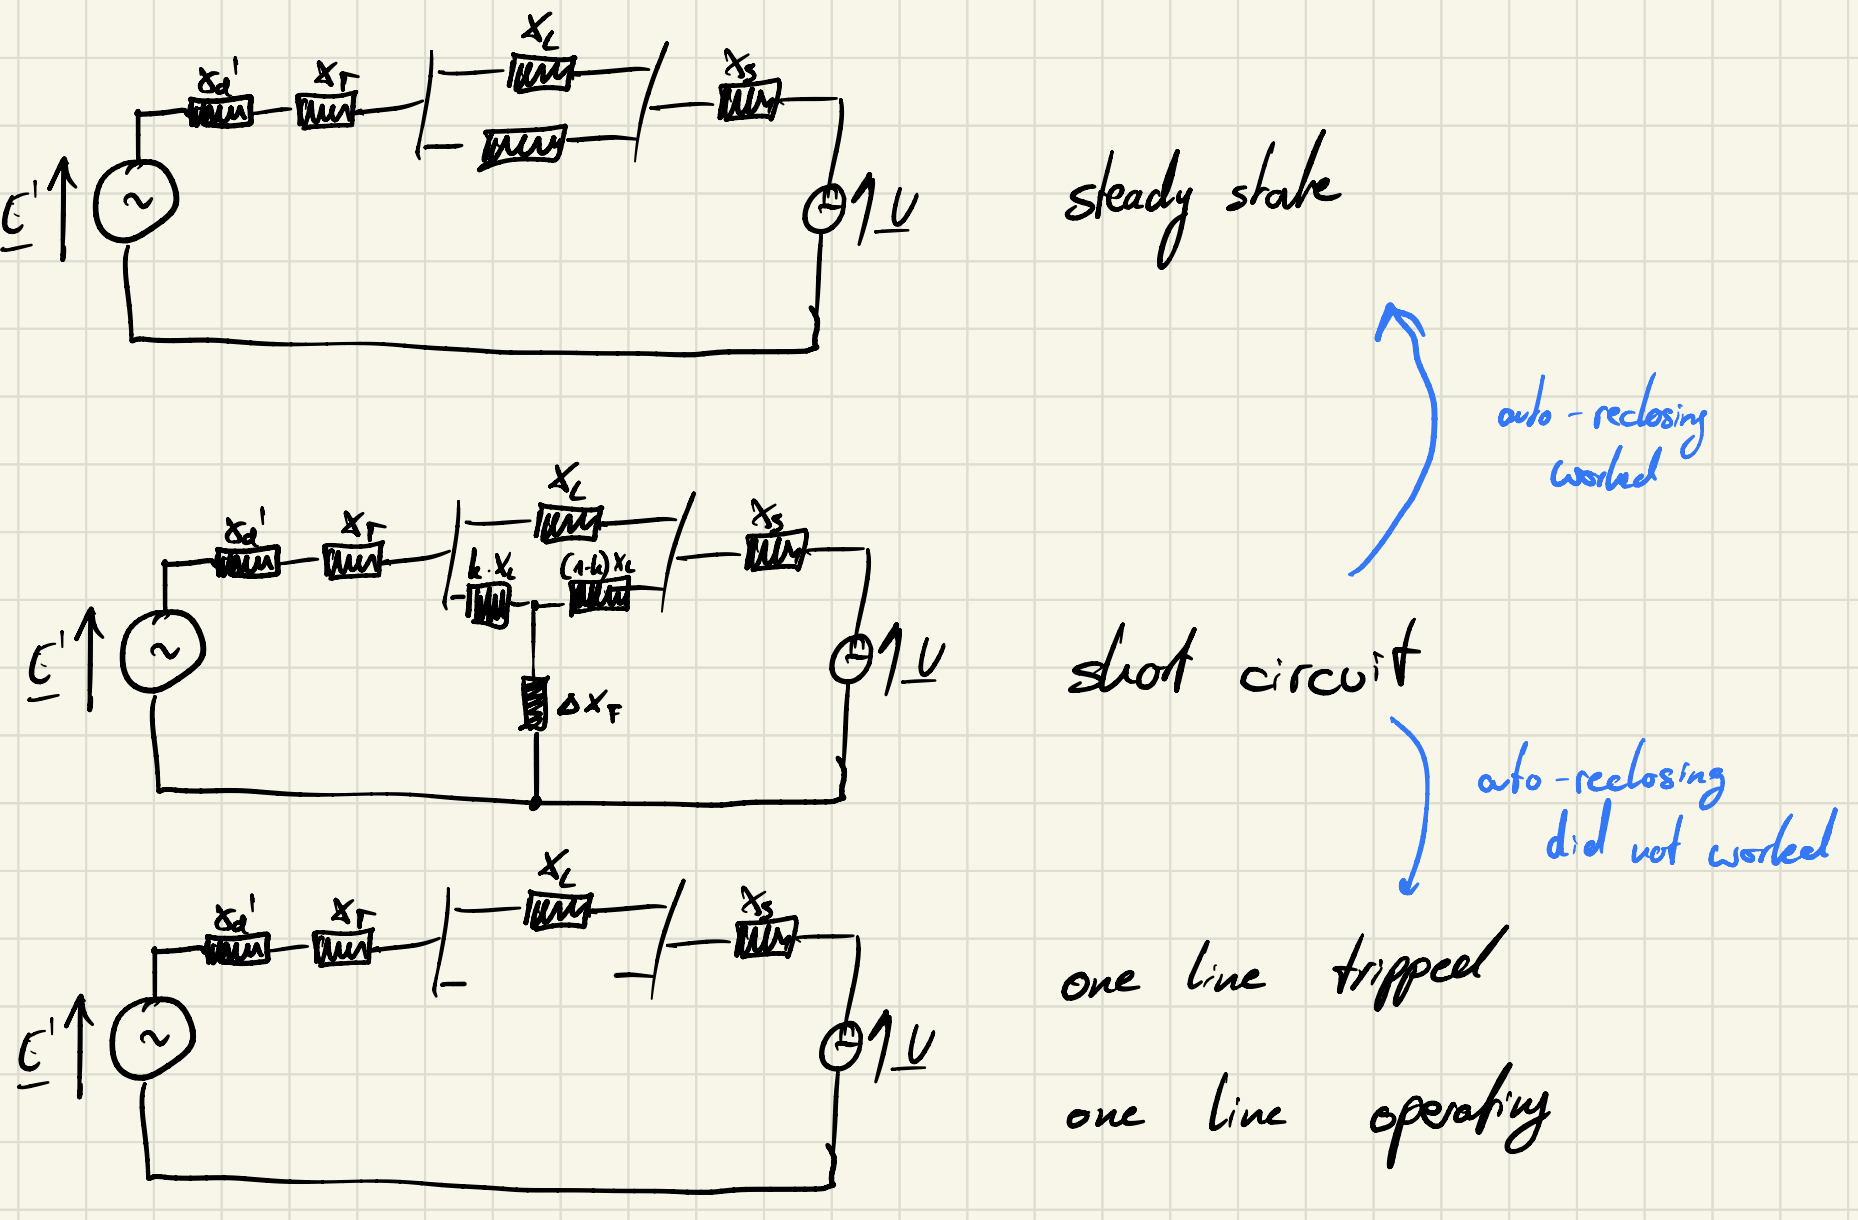 X_L
X_d' X_T X_S
E' U
steady state
auto-reclosing
worked
X_L
X_d' X_T X_S
k·X_L (1-k)X_L
E' U
ΔX_F
short circuit
auto-reclosing
did not worked
X_L
X_d' X_T X_S
E' U
one line tripped
one line operating